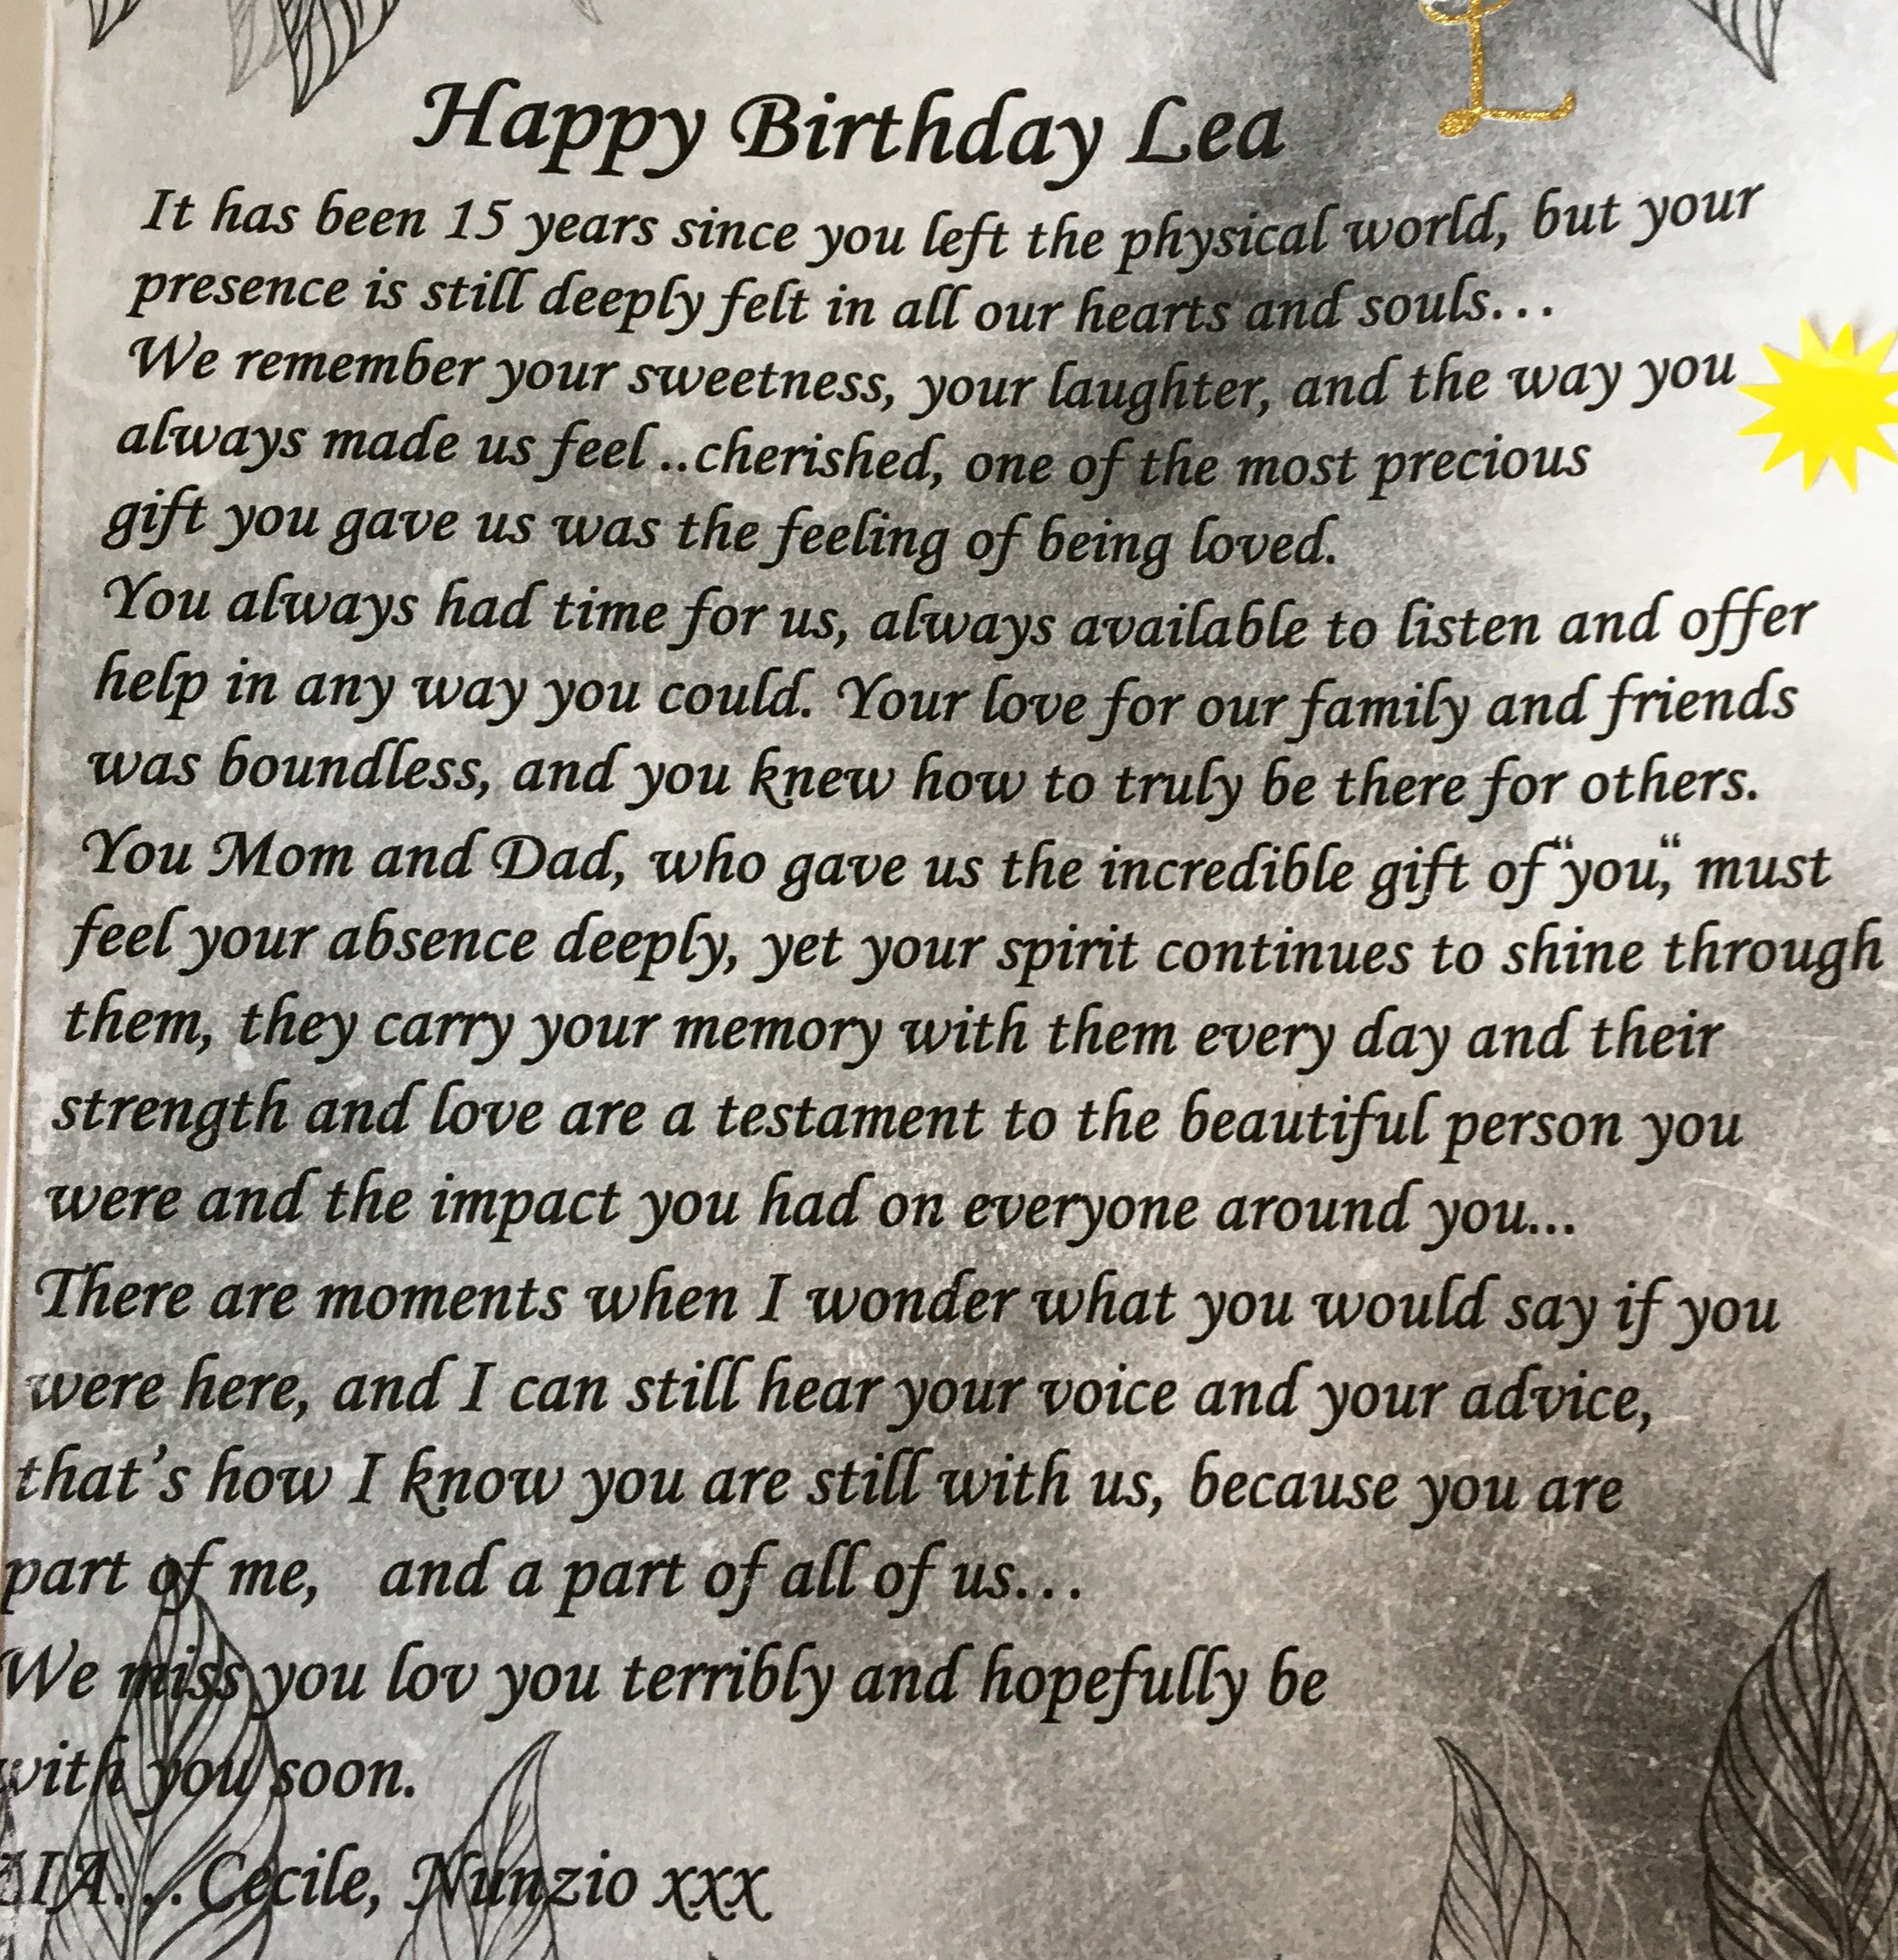 L
Happy Birthday Lea
It has been 15 years since you left the physical world, but your
presence is still deeply felt in all our hearts and souls...
We remember your sweetness, your laughter, and the way you
always made us feel ..cherished, one of the most precious
gift you gave us was the feeling of being loved.
You always had time for us, always available to listen and offer
help in any way you could. Your love for our family and friends
was boundless, and you knew how to truly be there for others.
You Mom and Dad, who gave us the incredible gift of “you,“ must
feel your absence deeply, yet your spirit continues to shine through
them, they carry your memory with them every day and their
strength and love are a testament to the beautiful person you
were and the impact you had on everyone around you...
There are moments when I wonder what you would say if you
were here, and I can still hear your voice and your advice,
that’s how I know you are still with us, because you are
part of me,   and a part of all of us...
We miss you lov you terribly and hopefully be
with you soon.
ZIA... Cecile, Nunzio xxx